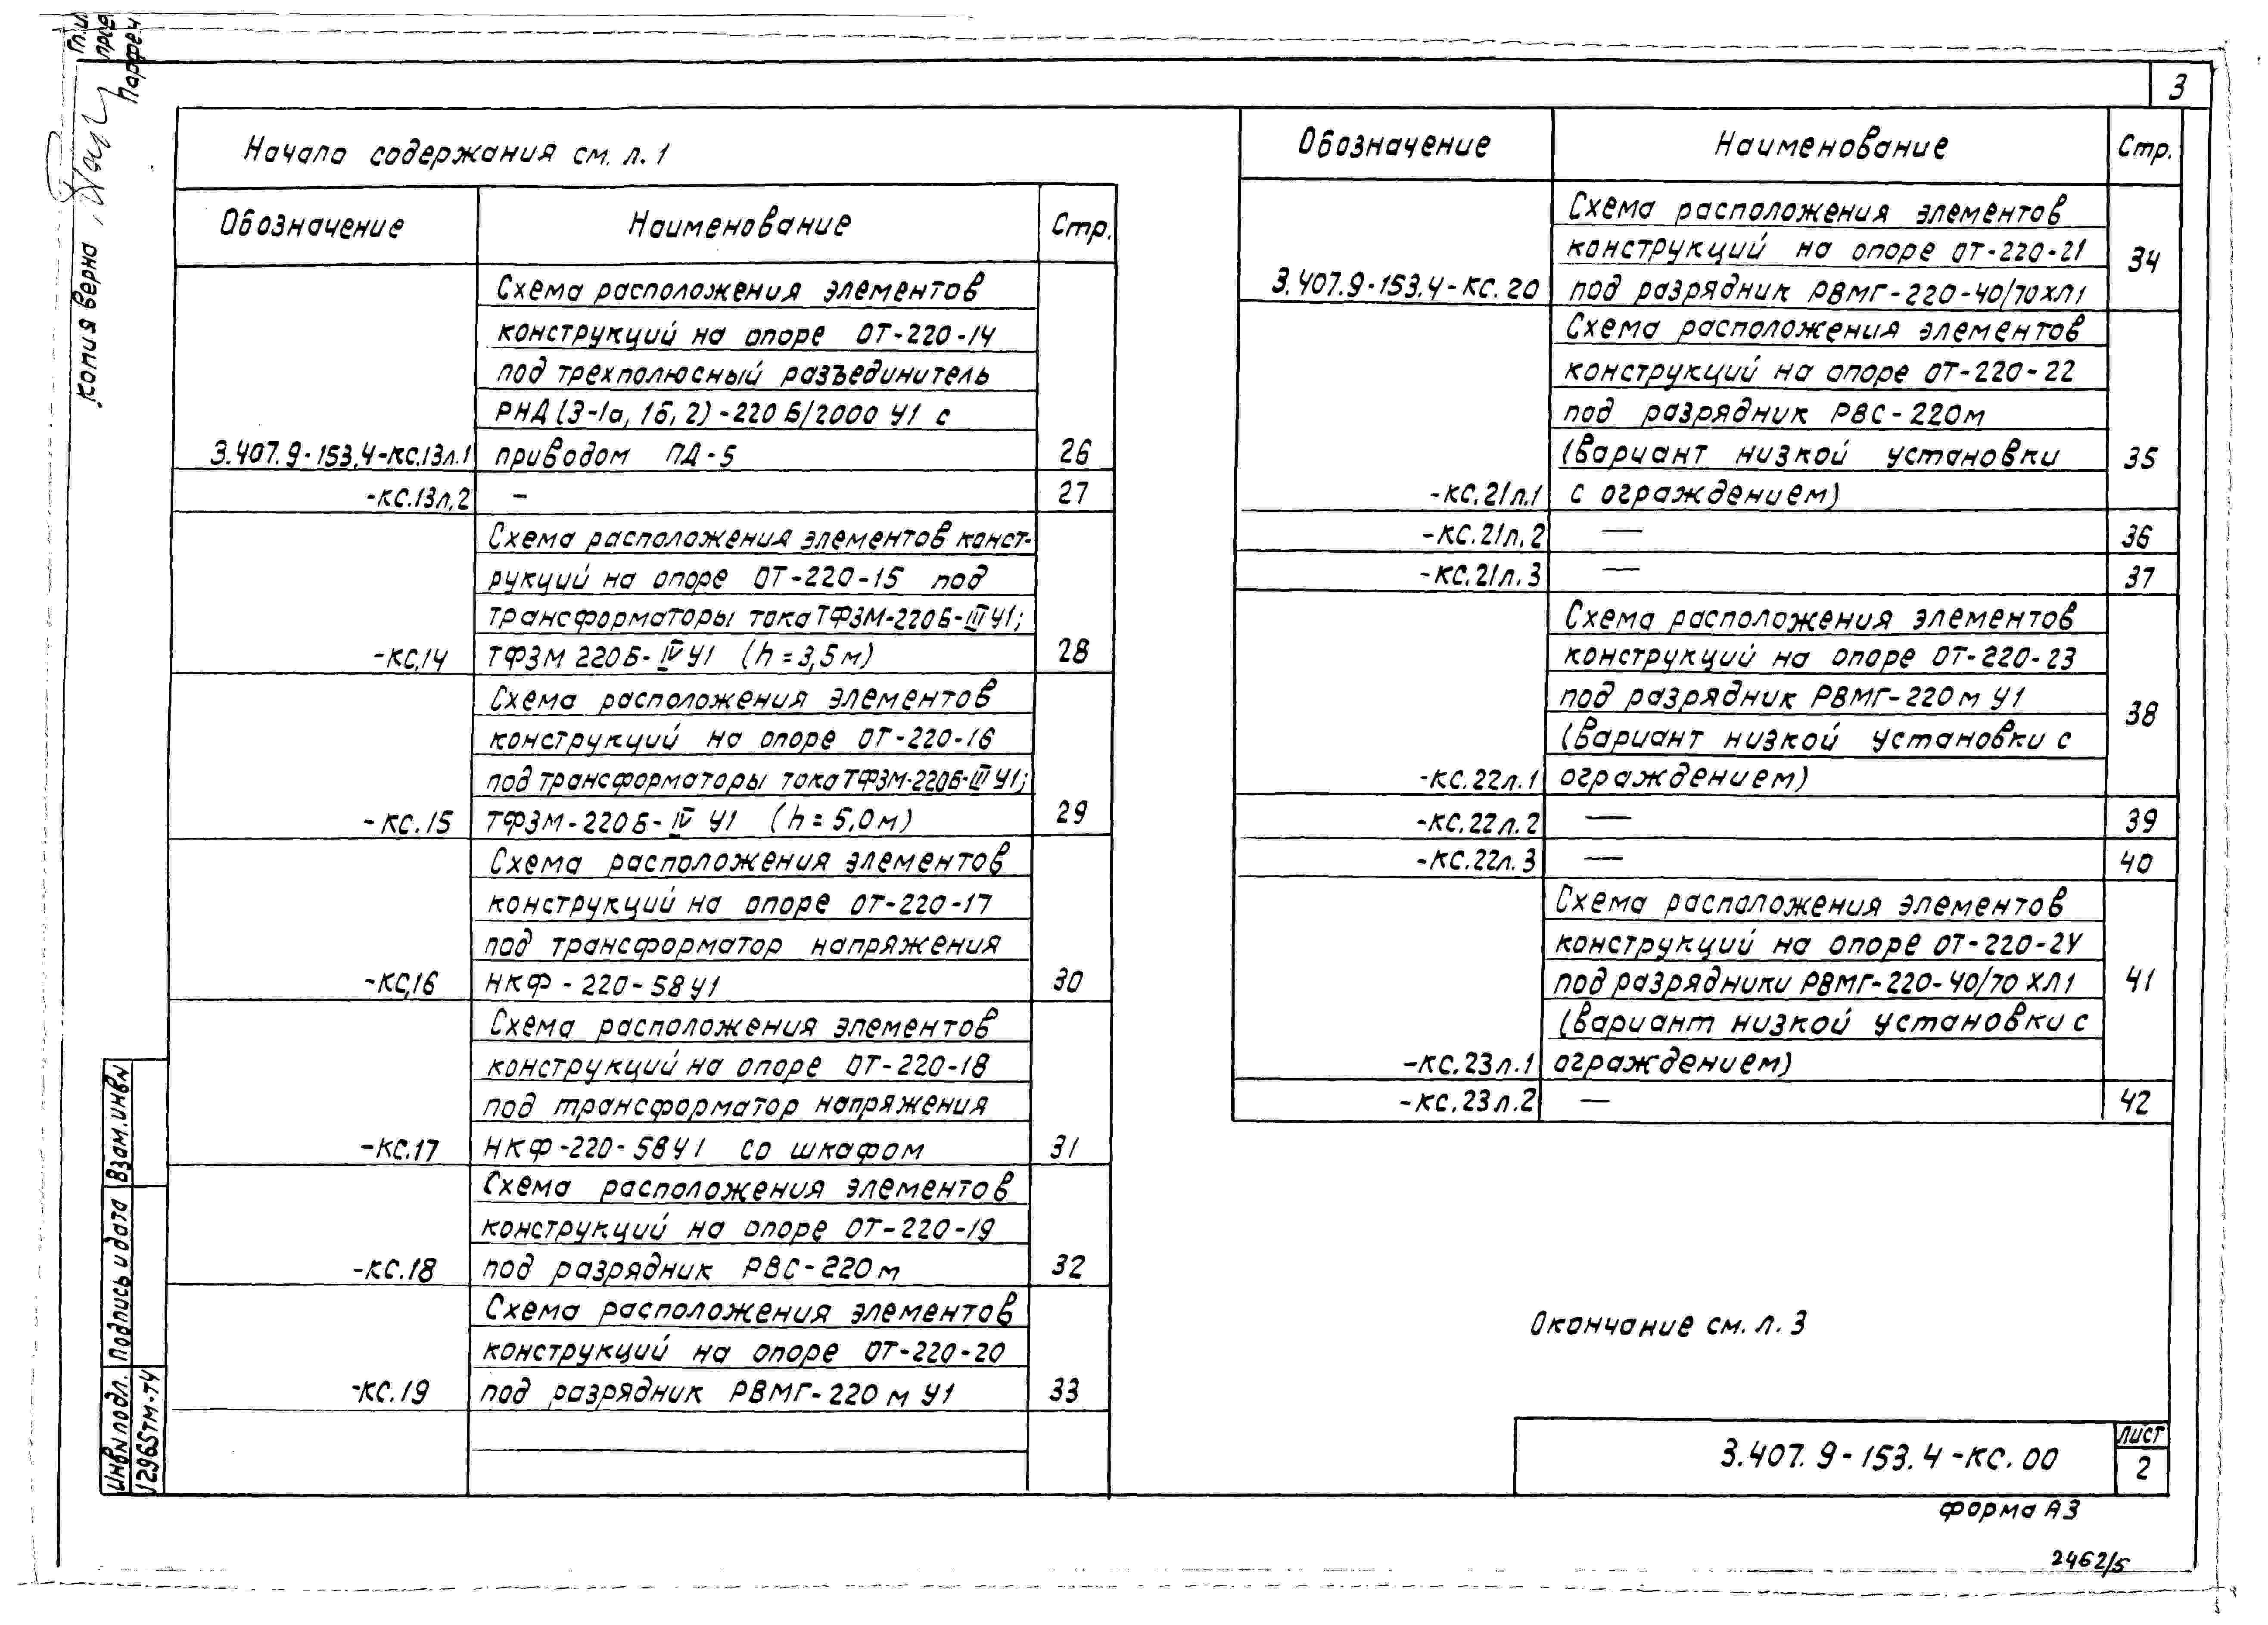 3
Начало содержания см. л. 1
Обозначение Наименование Стр.
Схема расположения элементов
конструкций на опоре ОТ-220-14
под трехполюсный разъединитель
РНД(3-1а, 1б, 2)-220 Б/2000 У1 с
3.407.9-153.4-КС.13л.1 приводом ПД-5 26
-КС.13л.2 — 27
Схема расположения элементов конст-
рукций на опоре ОТ-220-15 под
трансформаторы тока ТФЗМ-220Б-III У1;
-КС.14 ТФЗМ 220Б-IV У1 (h=3,5м) 28
Схема расположения элементов
конструкций на опоре ОТ-220-16
под трансформаторы тока ТФЗМ-220Б-III У1;
-КС.15 ТФЗМ-220Б-IV У1 (h=5,0м) 29
Схема расположения элементов
конструкций на опоре ОТ-220-17
под трансформатор напряжения
-КС.16 НКФ-220-58У1 30
Схема расположения элементов
конструкций на опоре ОТ-220-18
под трансформатор напряжения
-КС.17 НКФ-220-58У1 со шкафом 31
Схема расположения элементов
конструкций на опоре ОТ-220-19
-КС.18 под разрядник РВС-220м 32
Схема расположения элементов
конструкций на опоре ОТ-220-20
-КС.19 под разрядник РВМГ-220м У1 33
Обозначение Наименование Стр.
Схема расположения элементов
конструкций на опоре ОТ-220-21 34
3.407.9-153.4-КС.20 под разрядник РВМГ-220-40/70ХЛ1
Схема расположения элементов
конструкций на опоре ОТ-220-22
под разрядник РВС-220м
(вариант низкой установки 35
-КС.21л.1 с ограждением)
-КС.21л.2 — 36
-КС.21л.3 — 37
Схема расположения элементов
конструкций на опоре ОТ-220-23
под разрядник РВМГ-220м У1 38
(вариант низкой установки с
-КС.22л.1 ограждением)
-КС.22л.2 — 39
-КС.22л.3 — 40
Схема расположения элементов
конструкций на опоре ОТ-220-24
под разрядники РВМГ-220-40/70ХЛ1 41
(вариант низкой установки с
-КС.23л.1 ограждением)
-КС.23л.2 — 42
Окончание см. л. 3
3.407.9-153.4-КС.00
Лист
2
форма А3
2462/5
Копия верна
Взам.инв№
Подпись и дата
Инв№ подл.
12965тм-т4